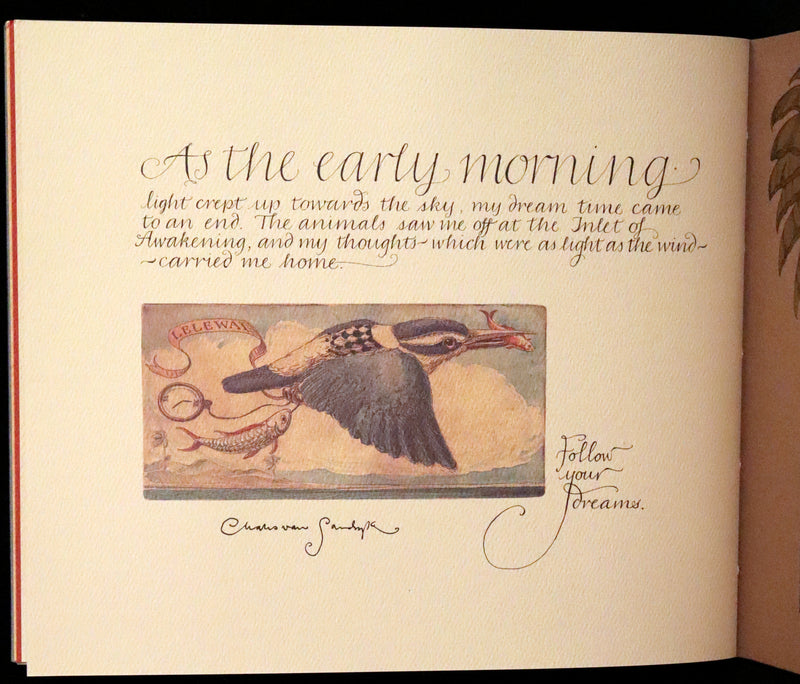 As the early morning
light crept up towards the sky, my dream time came
to an end. The animals saw me off at the Inlet of
Awakening, and my thoughts~which were as light as the wind~
~carried me home.
LELEWAI
Charles van Sandwyk
Follow
your
dreams.